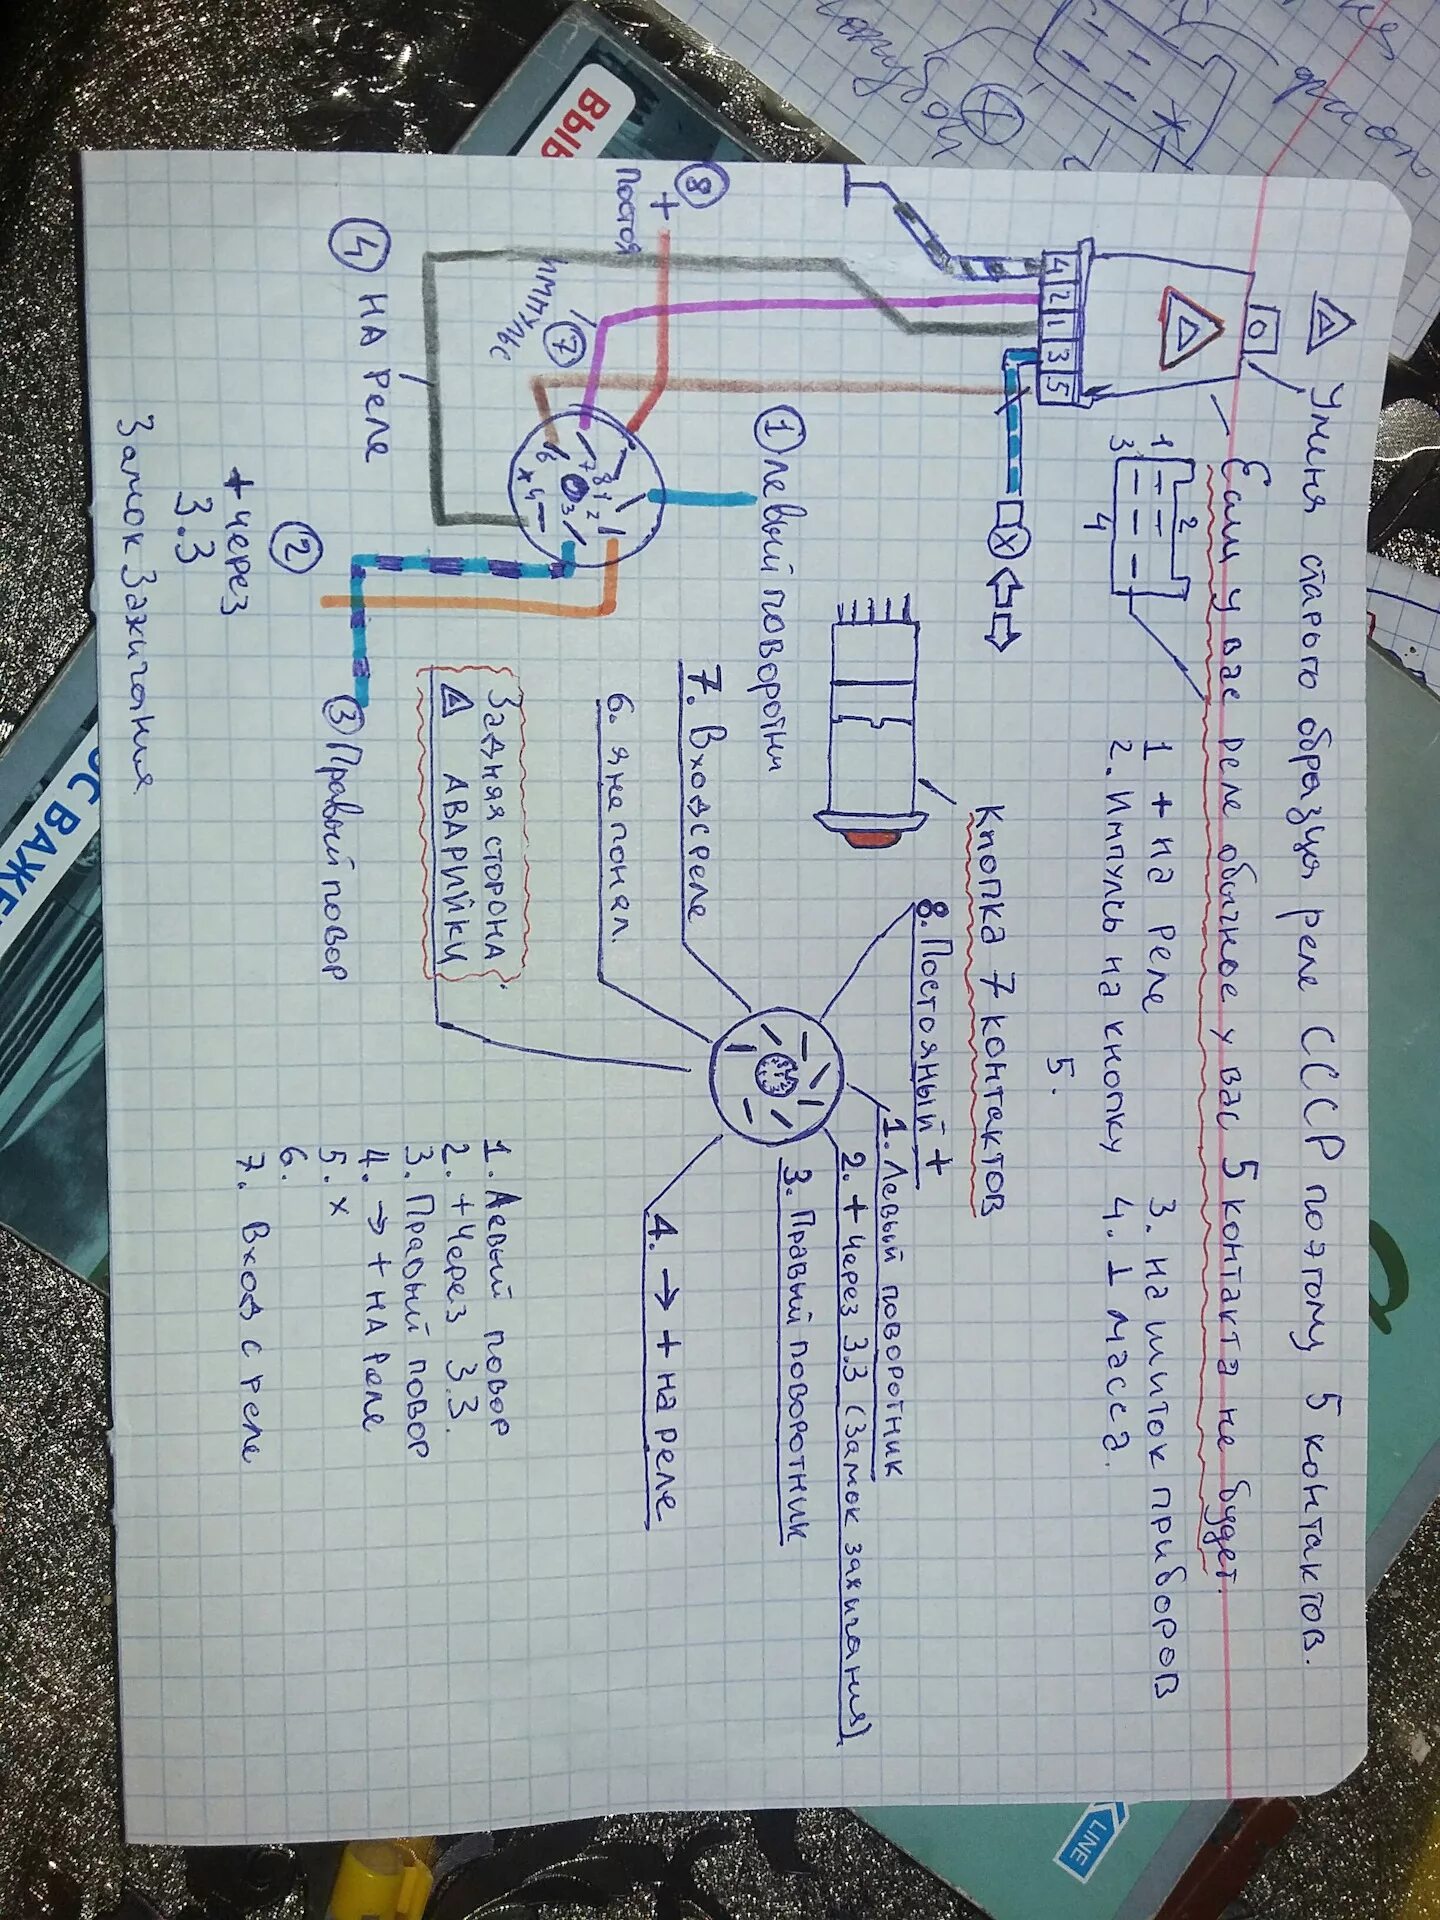 У меня старого образца реле СССР поэтому 5 контактов.
Если у вас реле обычное у вас 5 контакта не будет.
1 + на реле
2. Импульс на кнопку
3. на щиток приборов
4. ⊥ масса.
5.
1
2
3
4
4 2 1 3 5
Кнопка 7 контактов
8. Постояный +
1. Левый поворотник
2. + через 3.3 (Замок зажигания)
3. Правый поворотник
4. → + на реле
7. Вход с реле
6. я не понял.
Задняя сторона
АВАРИЙКИ
8
+
Постоя
7
импульс
1 левый поворотник
4 НА реле
3 Правый повор
2
+ через
3.3
Замок Зажигания
6 7 8 1 2 3 4 x
1. Левый повор
2. + Через 3.3.
3. Правый повор
4. → + на реле
5. x
6.
7. Вход с реле
ВЫБ
ОС ВАЖЕ
LINE